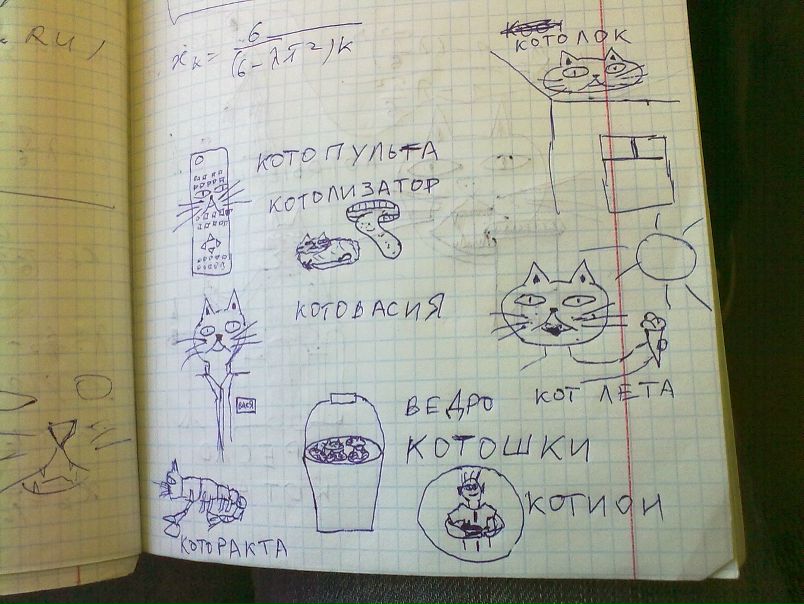 . RU,
x_k = 6 / (6 - λπ2)k
КОТОЛОК
КОТОПУЛЬТА
КОТОЛИЗАТОР
КОТОВАСИЯ
ВАСЯ
КОТ ЛЕТА
ВЕДРО
КОТОШКИ
КОТИОН
КОТОРАКТА